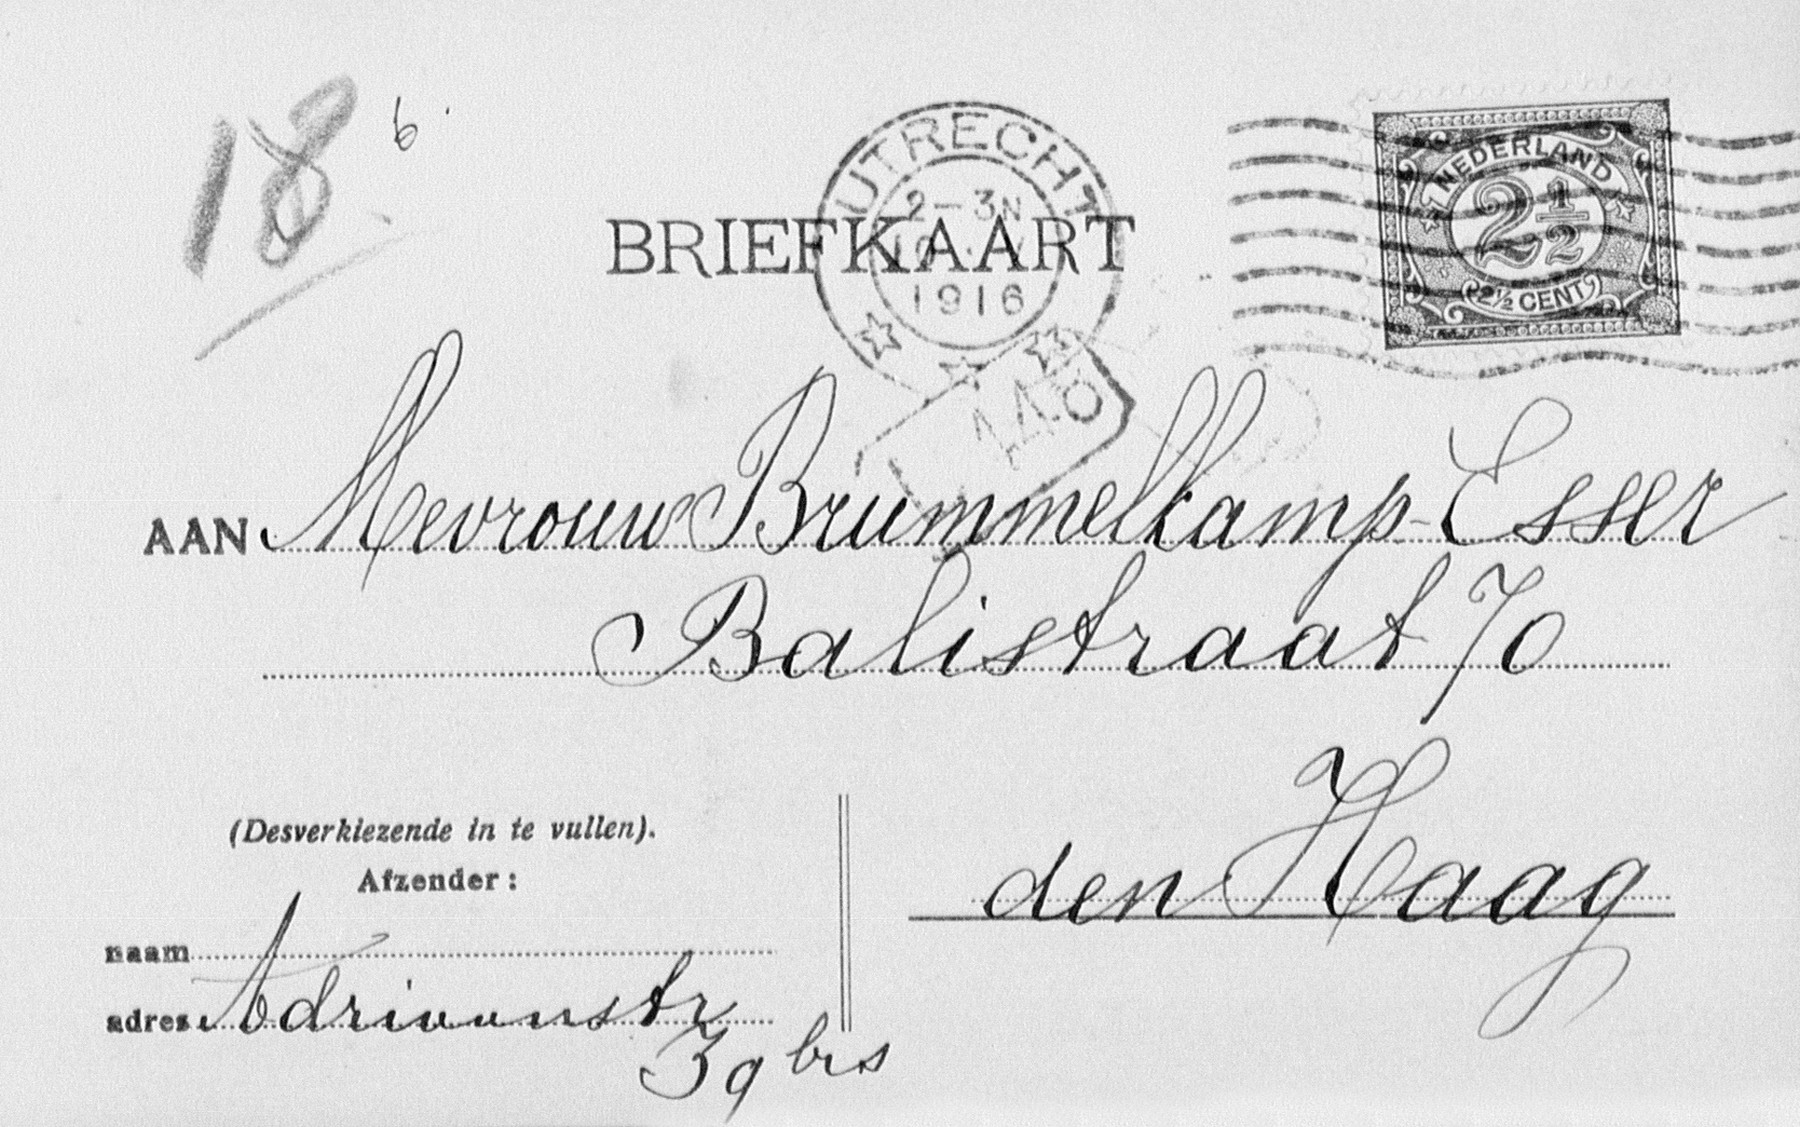 18 b.
UTRECHT
2-3N
1916
NEDERLAND
2½
2½ CENT
BRIEFKAART
AAN Mevrouw Brummelkamp-Esser
Balistraat 70
den Haag
(Desverkiezende in te vullen).
Afzender:
naam
adres Adriaanstr
39 brs